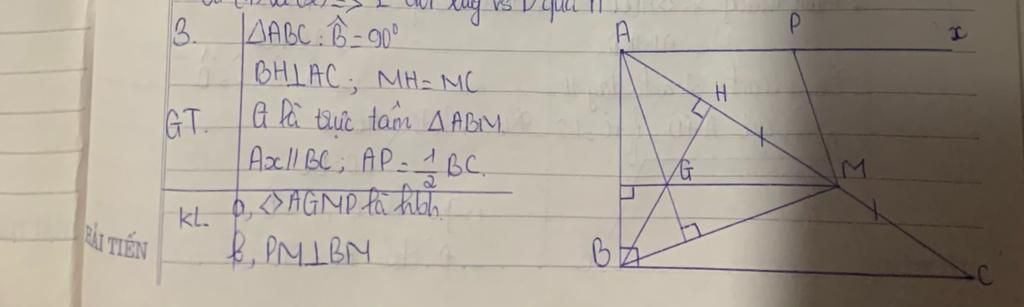 3.
ΔABC: B̂ = 90°
BH⊥AC; MH = MC
GT.
G là trực tâm ΔABM
Ax // BC; AP = 1/2 BC.
KL.
AGMP là hbh.
b, PM⊥BM
BÀI TIẾN
A
P
x
H
G
M
B
C